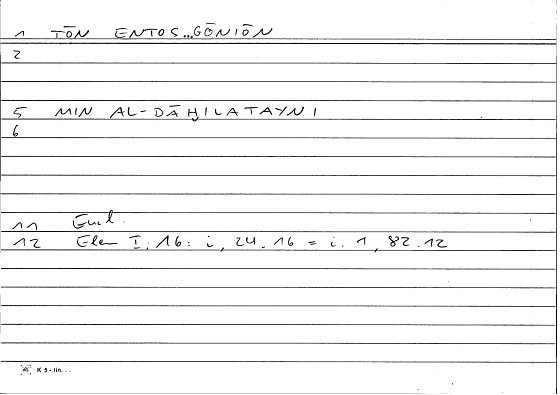 1 TŌN ENTOS...GŌNIŌN
2
5 MIN AL-DĀḪILATAYNI
6
11 Eucl.
12 Elem I, 16: i, 24.16 = i. 1, 82.12
K 5 - lin. . .